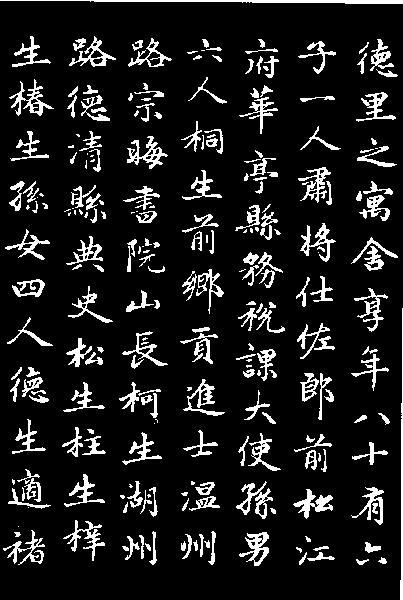 德里之寓舍享年八十有六
子一人肅將仕佐郎前松江
府華亭縣務稅課大使孫男
六人桐生前鄉貢進士温州
路宗晦書院山長柯生湖州
路德清縣典史松生柱生梓
生椿生孫女四人德生適褚